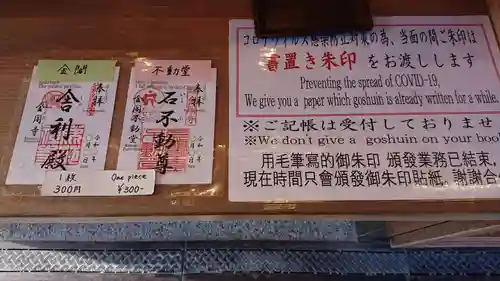 金閣
奉拝
舎利殿
金閣寺
令和
年
月
日
不動堂
奉拝
石不動尊
金閣不動堂
令和
年
月
日
1枚
300円
One piece
¥300-
コロナウイルス感染防止対策の為、当面の間ご朱印は
書置き朱印 をお渡しします
Preventing the spread of COVID-19,
We give you a paper which goshuin is already written for a while.
※ご記帳は受付しておりませ
※We don't give a goshuin on your boo
用毛筆寫的御朱印 頒發業務已結束
現在時間只會頒發御朱印貼紙。謝謝合